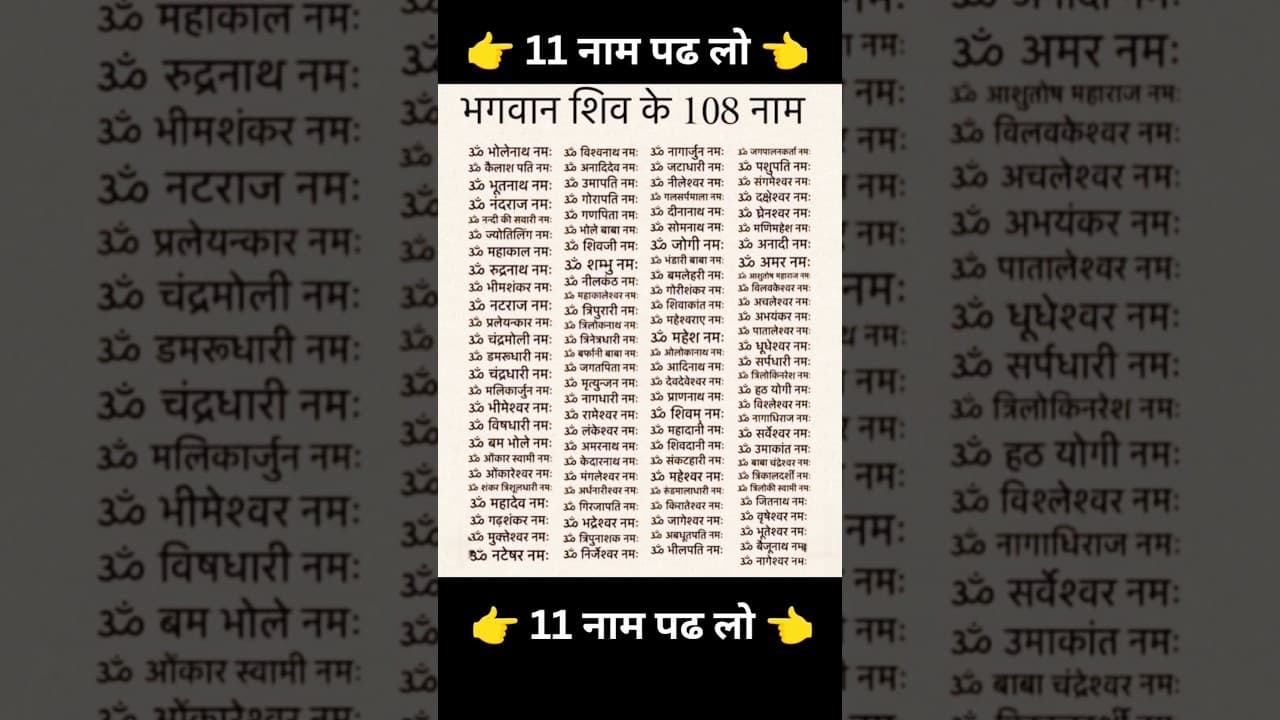 👉 11 नाम पढ लो 👈
भगवान शिव के 108 नाम
ॐ भोलेनाथ नमः
ॐ कैलाश पति नमः
ॐ भूतनाथ नमः
ॐ नंदराज नमः
ॐ नन्दी की सवारी नमः
ॐ ज्योतिलिंग नमः
ॐ महाकाल नमः
ॐ रुद्रनाथ नमः
ॐ भीमशंकर नमः
ॐ नटराज नमः
ॐ प्रलेयन्कार नमः
ॐ चंद्रमोली नमः
ॐ डमरूधारी नमः
ॐ चंद्रधारी नमः
ॐ मलिकार्जुन नमः
ॐ भीमेश्वर नमः
ॐ विषधारी नमः
ॐ बम भोले नमः
ॐ ओंकार स्वामी नमः
ॐ ओंकारेश्वर नमः
ॐ शंकर त्रिशूलधारी नमः
ॐ महादेव नमः
ॐ गढ़शंकर नमः
ॐ मुक्तेश्वर नमः
ॐ नटेषर नमः
ॐ विश्वनाथ नमः
ॐ अनादिदेव नमः
ॐ उमापति नमः
ॐ गोरापति नमः
ॐ गणपिता नमः
ॐ भोले बाबा नमः
ॐ शिवजी नमः
ॐ शम्भु नमः
ॐ नीलकंठ नमः
ॐ महाकालेश्वर नमः
ॐ त्रिपुरारी नमः
ॐ त्रिलोकनाथ नमः
ॐ त्रिनेत्रधारी नमः
ॐ बर्फानी बाबा नमः
ॐ जगतपिता नमः
ॐ मृत्युन्जन नमः
ॐ नागधारी नमः
ॐ रामेश्वर नमः
ॐ लंकेश्वर नमः
ॐ अमरनाथ नमः
ॐ केदारनाथ नमः
ॐ मंगलेश्वर नमः
ॐ अर्धनारीश्वर नमः
ॐ गिरजापति नमः
ॐ भद्रेश्वर नमः
ॐ त्रिपुनाशक नमः
ॐ निर्जेश्वर नमः
ॐ नागार्जुन नमः
ॐ जटाधारी नमः
ॐ नीलेश्वर नमः
ॐ गलसर्पमाला नमः
ॐ दीनानाथ नमः
ॐ सोमनाथ नमः
ॐ जोगी नमः
ॐ भंडारी बाबा नमः
ॐ बमलेहरी नमः
ॐ गोरीशंकर नमः
ॐ शिवाकांत नमः
ॐ महेश्वराए नमः
ॐ महेश नमः
ॐ ओलोकानाथ नमः
ॐ आदिनाथ नमः
ॐ देवदेवेश्वर नमः
ॐ प्राणनाथ नमः
ॐ शिवम् नमः
ॐ महादानी नमः
ॐ शिवदानी नमः
ॐ संकटहारी नमः
ॐ महेश्वर नमः
ॐ रुंडमालाधारी नमः
ॐ किरातेश्वर नमः
ॐ जागेश्वर नमः
ॐ अबधूतपति नमः
ॐ भीलपति नमः
ॐ जगपालनकर्ता नमः
ॐ पशुपति नमः
ॐ संगमेश्वर नमः
ॐ दक्षेश्वर नमः
ॐ घ्रेनश्वर नमः
ॐ मणिमहेश नमः
ॐ अनादी नमः
ॐ अमर नमः
ॐ आशुतोष महाराज नमः
ॐ विलवकेश्वर नमः
ॐ अचलेश्वर नमः
ॐ अभयंकर नमः
ॐ पातालेश्वर नमः
ॐ धूधेश्वर नमः
ॐ सर्पधारी नमः
ॐ त्रिलोकिनरेश नमः
ॐ हठ योगी नमः
ॐ विश्लेश्वर नमः
ॐ नागाधिराज नमः
ॐ सर्वेश्वर नमः
ॐ उमाकांत नमः
ॐ बाबा चंद्रेश्वर नमः
ॐ त्रिकालदर्शी नमः
ॐ त्रिलोकी स्वामी नमः
ॐ जितनाथ नमः
ॐ वृषेश्वर नमः
ॐ भूतेश्वर नमः
ॐ बैजूनाथ नमः
ॐ नागेश्वर नमः
👉 11 नाम पढ लो 👈